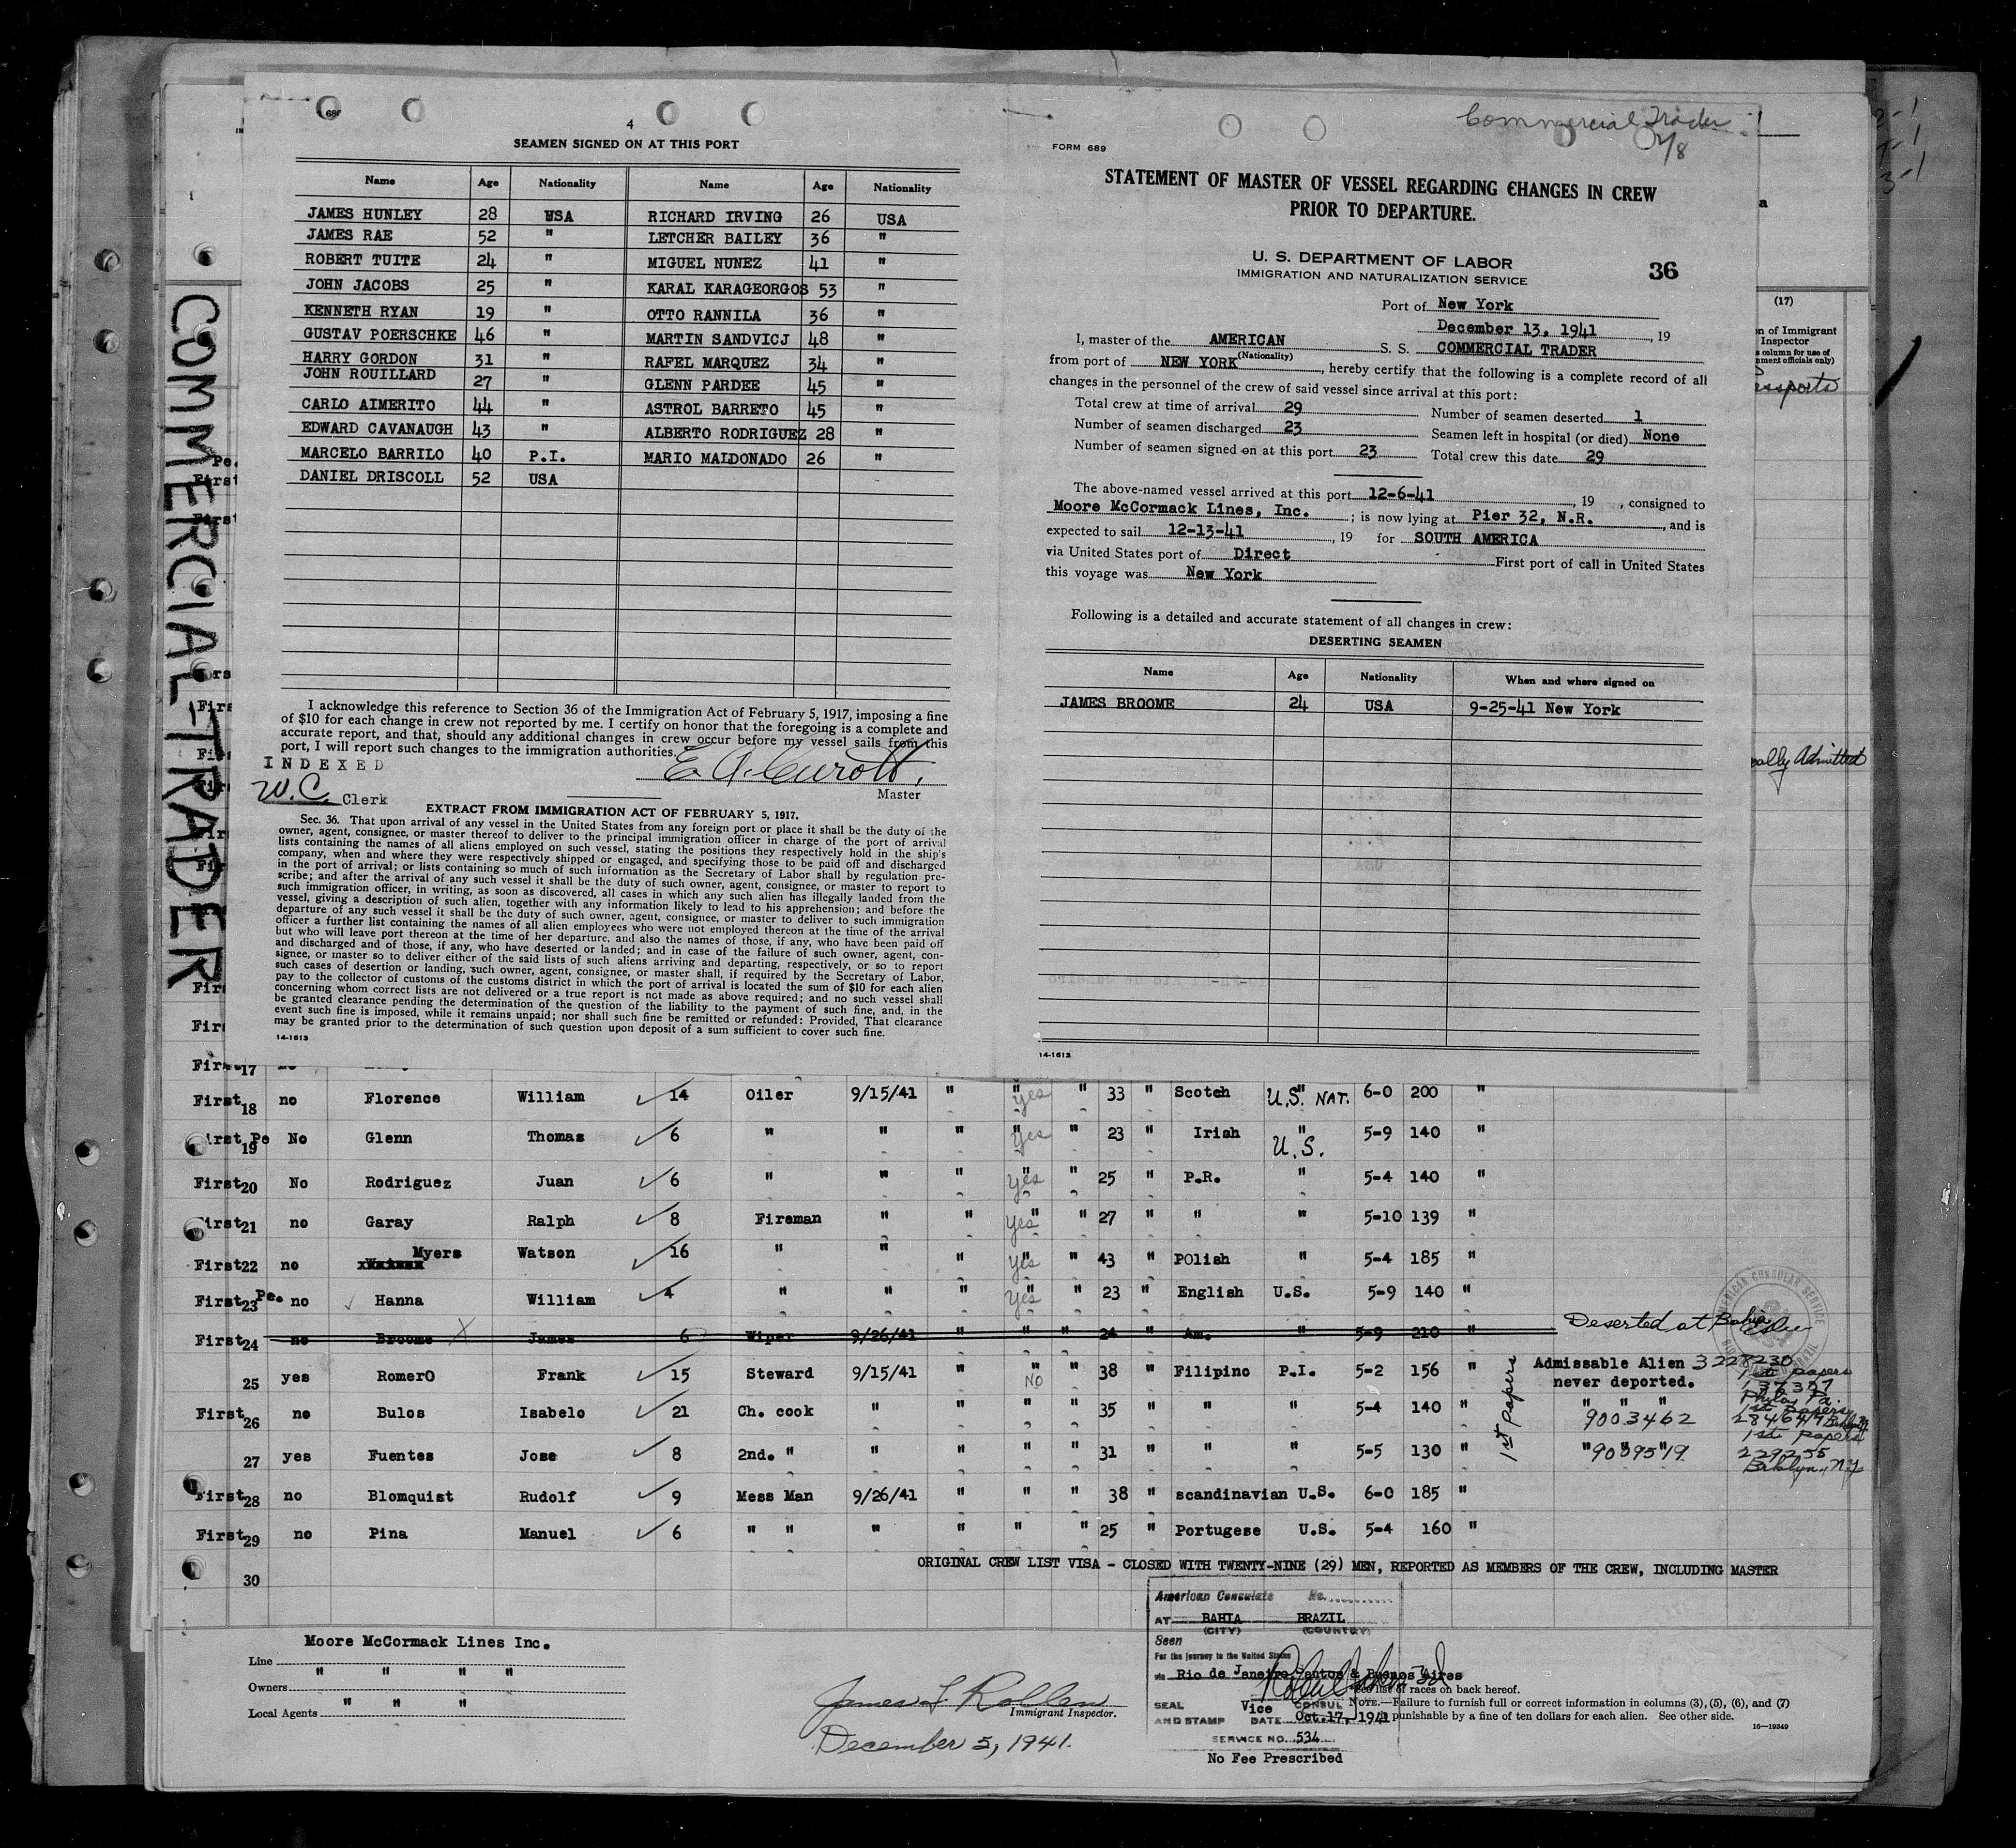 COMMERCIAL-TRADER
4
SEAMEN SIGNED ON AT THIS PORT
Name Age Nationality Name Age Nationality
JAMES HUNLEY 28 USA RICHARD IRVING 26 USA
JAMES RAE 52 " LETCHER BAILEY 36 "
ROBERT TUITE 24 " MIGUEL NUNEZ 41 "
JOHN JACOBS 25 " KARAL KARAGEORGOS 53 "
KENNETH RYAN 19 " OTTO RANNILA 36 "
GUSTAV POERSCHKE 46 " MARTIN SANDVICJ 48 "
HARRY GORDON 31 " RAFEL MARQUEZ 34 "
JOHN ROUILLARD 27 " GLENN PARDEE 45 "
CARLO AIMERITO 44 " ASTROL BARRETO 45 "
EDWARD CAVANAUGH 43 " ALBERTO RODRIGUEZ 28 "
MARCELO BARRILO 40 P.I. MARIO MALDONADO 26 "
DANIEL DRISCOLL 52 USA
I acknowledge this reference to Section 36 of the Immigration Act of February 5, 1917, imposing a fine
of $10 for each change in crew not reported by me. I certify on honor that the foregoing is a complete and
accurate report, and that, should any additional changes in crew occur before my vessel sails from this
port, I will report such changes to the immigration authorities.
INDEXED
W.C. Clerk
Master
EXTRACT FROM IMMIGRATION ACT OF FEBRUARY 5, 1917.
Sec. 36. That upon arrival of any vessel in the United States from any foreign port or place it shall be the duty of the
owner, agent, consignee, or master thereof to deliver to the principal immigration officer in charge of the port of arrival
lists containing the names of all aliens employed on such vessel, stating the positions they respectively hold in the ship's
company, when and where they were respectively shipped or engaged, and specifying those to be paid off and discharged
in the port of arrival; or lists containing so much of such information as the Secretary of Labor shall by regulation pre-
scribe; and after the arrival of any such vessel it shall be the duty of such owner, agent, consignee, or master to report to
such immigration officer, in writing, as soon as discovered, all cases in which any such alien has illegally landed from the
vessel, giving a description of such alien, together with any information likely to lead to his apprehension; and before the
departure of any such vessel it shall be the duty of such owner, agent, consignee, or master to deliver to such immigration
officer a further list containing the names of all alien employees who were not employed thereon at the time of the arrival
but who will leave port thereon at the time of her departure, and also the names of those, if any, who have been paid off
and discharged and of those, if any, who have deserted or landed; and in case of the failure of such owner, agent, con-
signee, or master so to deliver either of the said lists of such aliens arriving and departing, respectively, or so to report
such cases of desertion or landing, such owner, agent, consignee, or master shall, if required by the Secretary of Labor,
pay to the collector of customs of the customs district in which the port of arrival is located the sum of $10 for each alien
concerning whom correct lists are not delivered or a true report is not made as above required; and no such vessel shall
be granted clearance pending the determination of the question of the liability to the payment of such fine, and, in the
event such fine is imposed, while it remains unpaid; nor shall such fine be remitted or refunded: Provided, That clearance
may be granted prior to the determination of such question upon deposit of a sum sufficient to cover such fine.
14-1613
Commercial Trader
FORM 689
STATEMENT OF MASTER OF VESSEL REGARDING CHANGES IN CREW
PRIOR TO DEPARTURE.
U. S. DEPARTMENT OF LABOR
IMMIGRATION AND NATURALIZATION SERVICE
36
Port of New York
December 13, 1941, 19
I, master of the AMERICAN S. S. COMMERCIAL TRADER
(Nationality)
from port of NEW YORK, hereby certify that the following is a complete record of all
changes in the personnel of the crew of said vessel since arrival at this port:
Total crew at time of arrival 29 Number of seamen deserted 1
Number of seamen discharged 23 Seamen left in hospital (or died) None
Number of seamen signed on at this port 23 Total crew this date 29
The above-named vessel arrived at this port 12-6-41, 19 , consigned to
Moore McCormack Lines, Inc. ; is now lying at Pier 32, N.R. , and is
expected to sail 12-13-41, 19 for SOUTH AMERICA
via United States port of Direct First port of call in United States
this voyage was New York
Following is a detailed and accurate statement of all changes in crew:
DESERTING SEAMEN
Name Age Nationality When and where signed on
JAMES BROOME 24 USA 9-25-41 New York
14-1613
(17)
n of Immigrant
Inspector
s column for use of
nment officials only)
ssports
ally Admitted
First 17
First 18 no Florence William 14 Oiler 9/15/41 " " Yes " 33 " Scotch " U.S. NAT. 6-0 200 "
First Pe 19 No Glenn Thomas 6 " " " " Yes " 23 " Irish " U.S. 5-9 140 "
First 20 No Rodriguez Juan 6 " " " " Yes " 25 " P.R. " 5-4 140 "
First 21 no Garay Ralph 8 Fireman " " " Yes " 27 " " " 5-10 139 "
First 22 no Myers Watson 16 " " " " Yes " 43 " POlish " 5-4 185 "
First 23 Pe. no Hanna William 4 " " " " Yes " 23 " English U.S. 5-9 140 "
First 24 no Broome X James 6 Wiper 9/26/41 " " " 24 " Am. " 5-9 210 " Deserted at Bahia
25 yes RomerO Frank 15 Steward 9/15/41 " " NO " 38 " Filipino P.I. 5-2 156 " 1st papers Admissable Alien 3228230
never deported. 1st papers
137377
Phila, Pa.
First 26 no Bulos Isabelo 21 Ch. cook " " " " 35 " " " 5-4 140 " " " " 9003462 1st papers
284647
27 yes Fuentes Jose 8 2nd. " " " " " 31 " " " 5-5 130 " " " " 9009519 1st papers
229255
Brklyn, NY
First 28 no Blomquist Rudolf 9 Mess Man 9/26/41 " " " 38 " scandinavian U.S. 6-0 185 "
First 29 no Pina Manuel 6 " " " " " " 25 " Portugese U.S. 5-4 160 "
ORIGINAL CREW LIST VISA - CLOSED WITH TWENTY-NINE (29) MEN, REPORTED AS MEMBERS OF THE CREW, INCLUDING MASTER
30
Moore McCormack Lines Inc.
Line
" " " "
Owners
" " "
Local Agents
James L. Rollen
Immigrant Inspector.
December 5, 1941.
American Consulate No.
AT BAHIA BRAZIL
(CITY) (COUNTRY)
Seen
For the journey to the United States
via Rio de Janeiro Santos & Buenos Aires
SEAL Vice CONSUL
AND STAMP DATE Oct. 17, 1941
SERVICE NO. 534
No Fee Prescribed
See list of races on back hereof.
NOTE.—Failure to furnish full or correct information in columns (3), (5), (6), and (7)
punishable by a fine of ten dollars for each alien. See other side.
16—19349